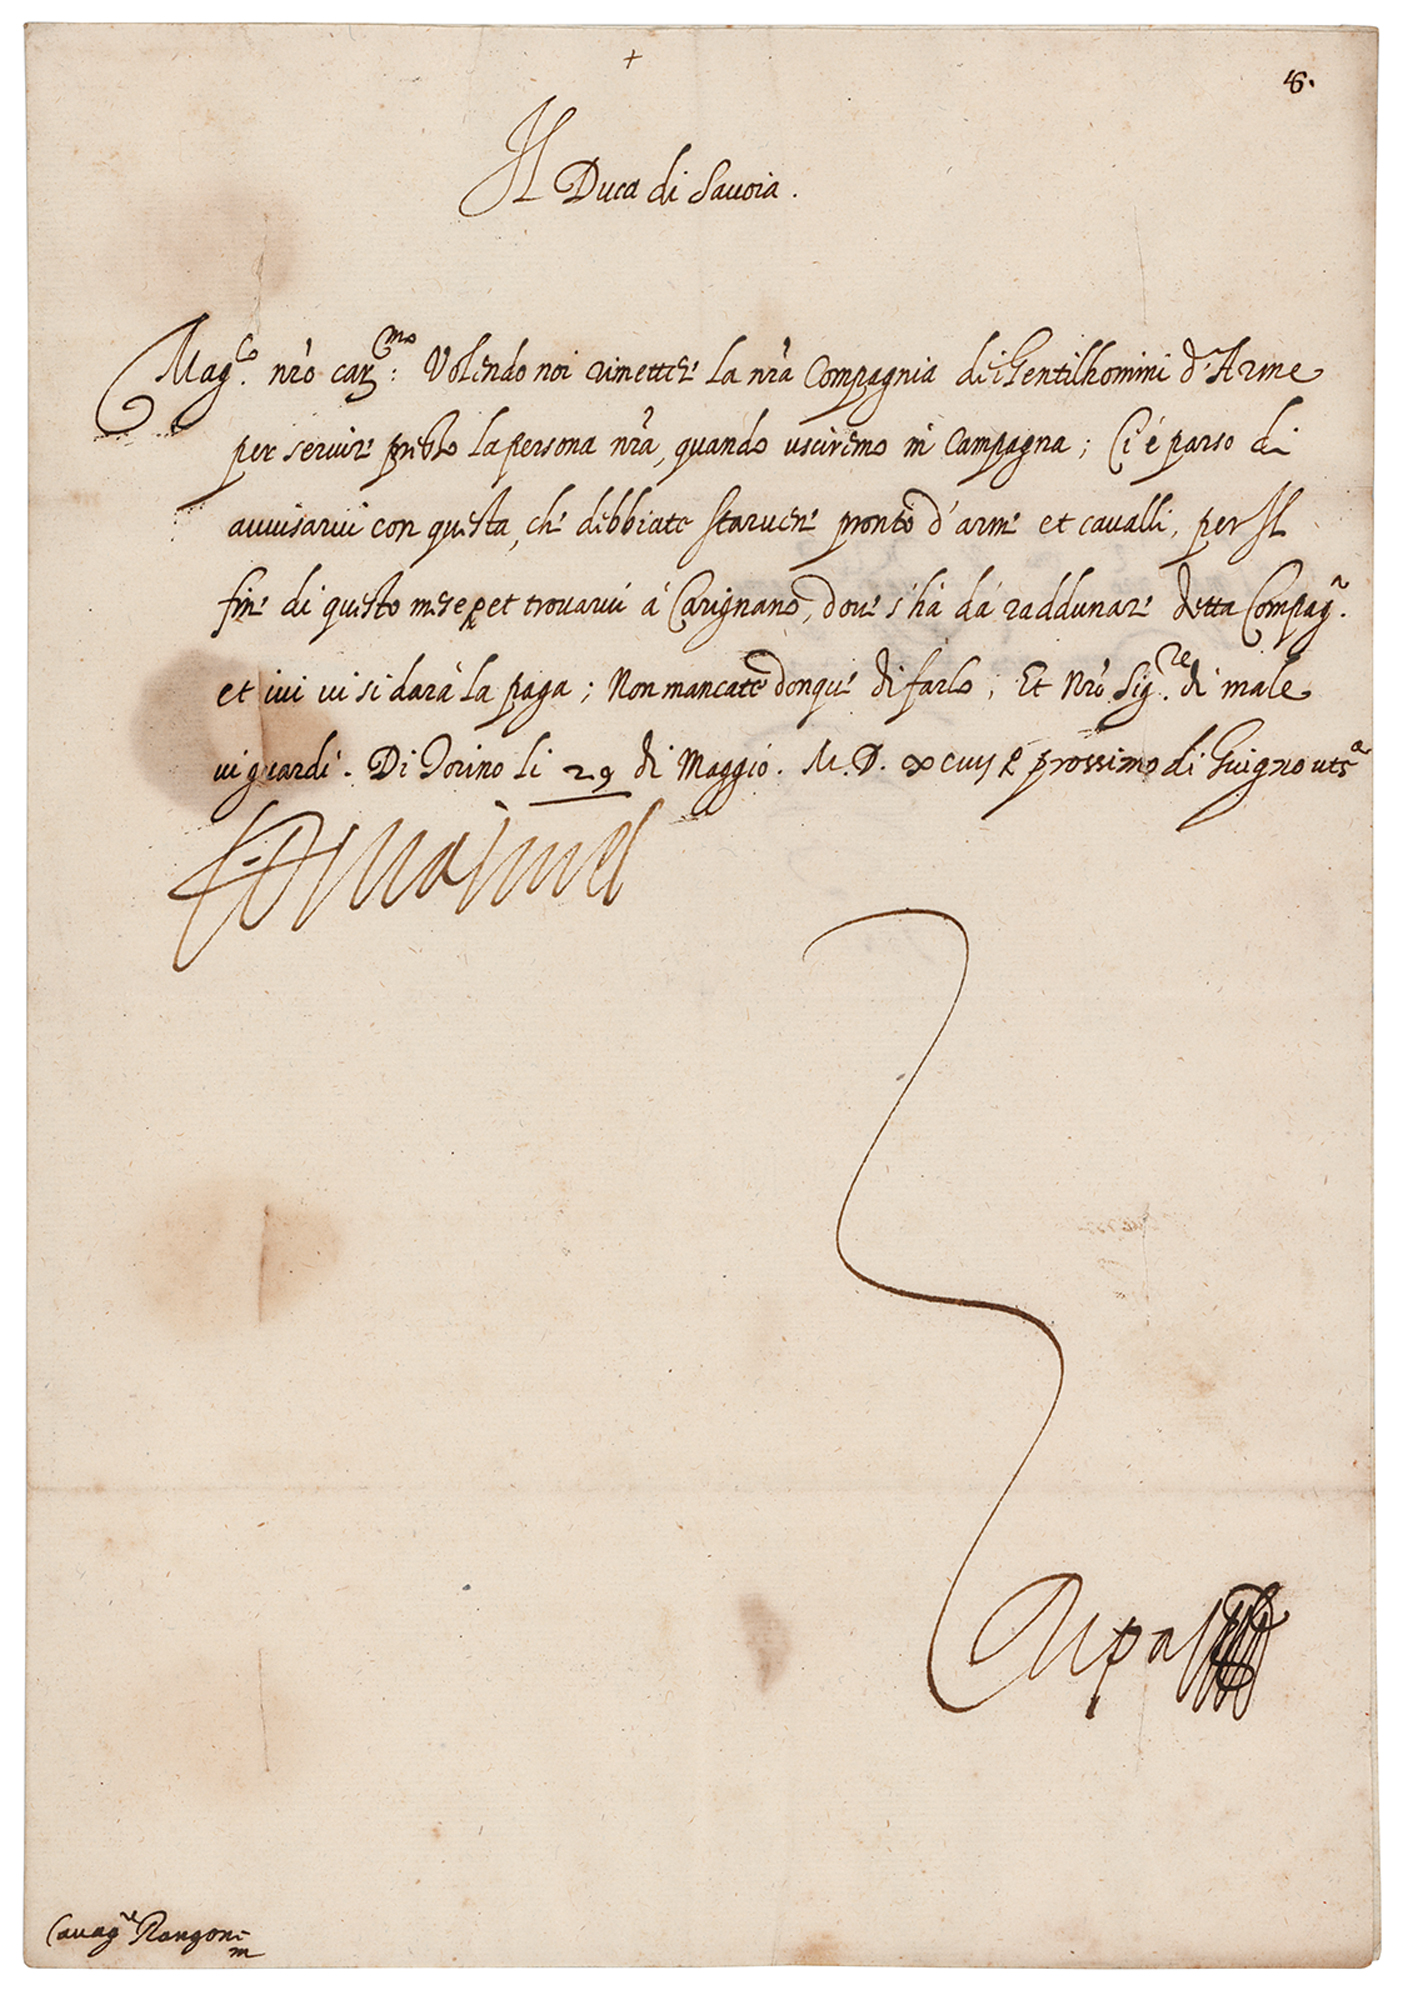 +
6.
Il Duca di Savoia.
Mag.co nro car.mo: Volendo noi rimetter la nra Compagnia dei Gentilhomini d'Arme
per servire presso la persona nra, quando usciremo in Campagna; Ci è parso di
avvisarvi con questa, che debbiate starvene pronto d'arme et cavalli, per Il
fine di questo mese et trovarvi à Carignano, dove s'ha dà raddunare detta Compag.a
et ivi vi si darà la paga; Non mancate donque di farlo, Et Nro Sig.re di male
vi guardi. Di Torino li 29 di Maggio. M.D. prossimo di Guigno
Ripa
Cavag.re Rangon